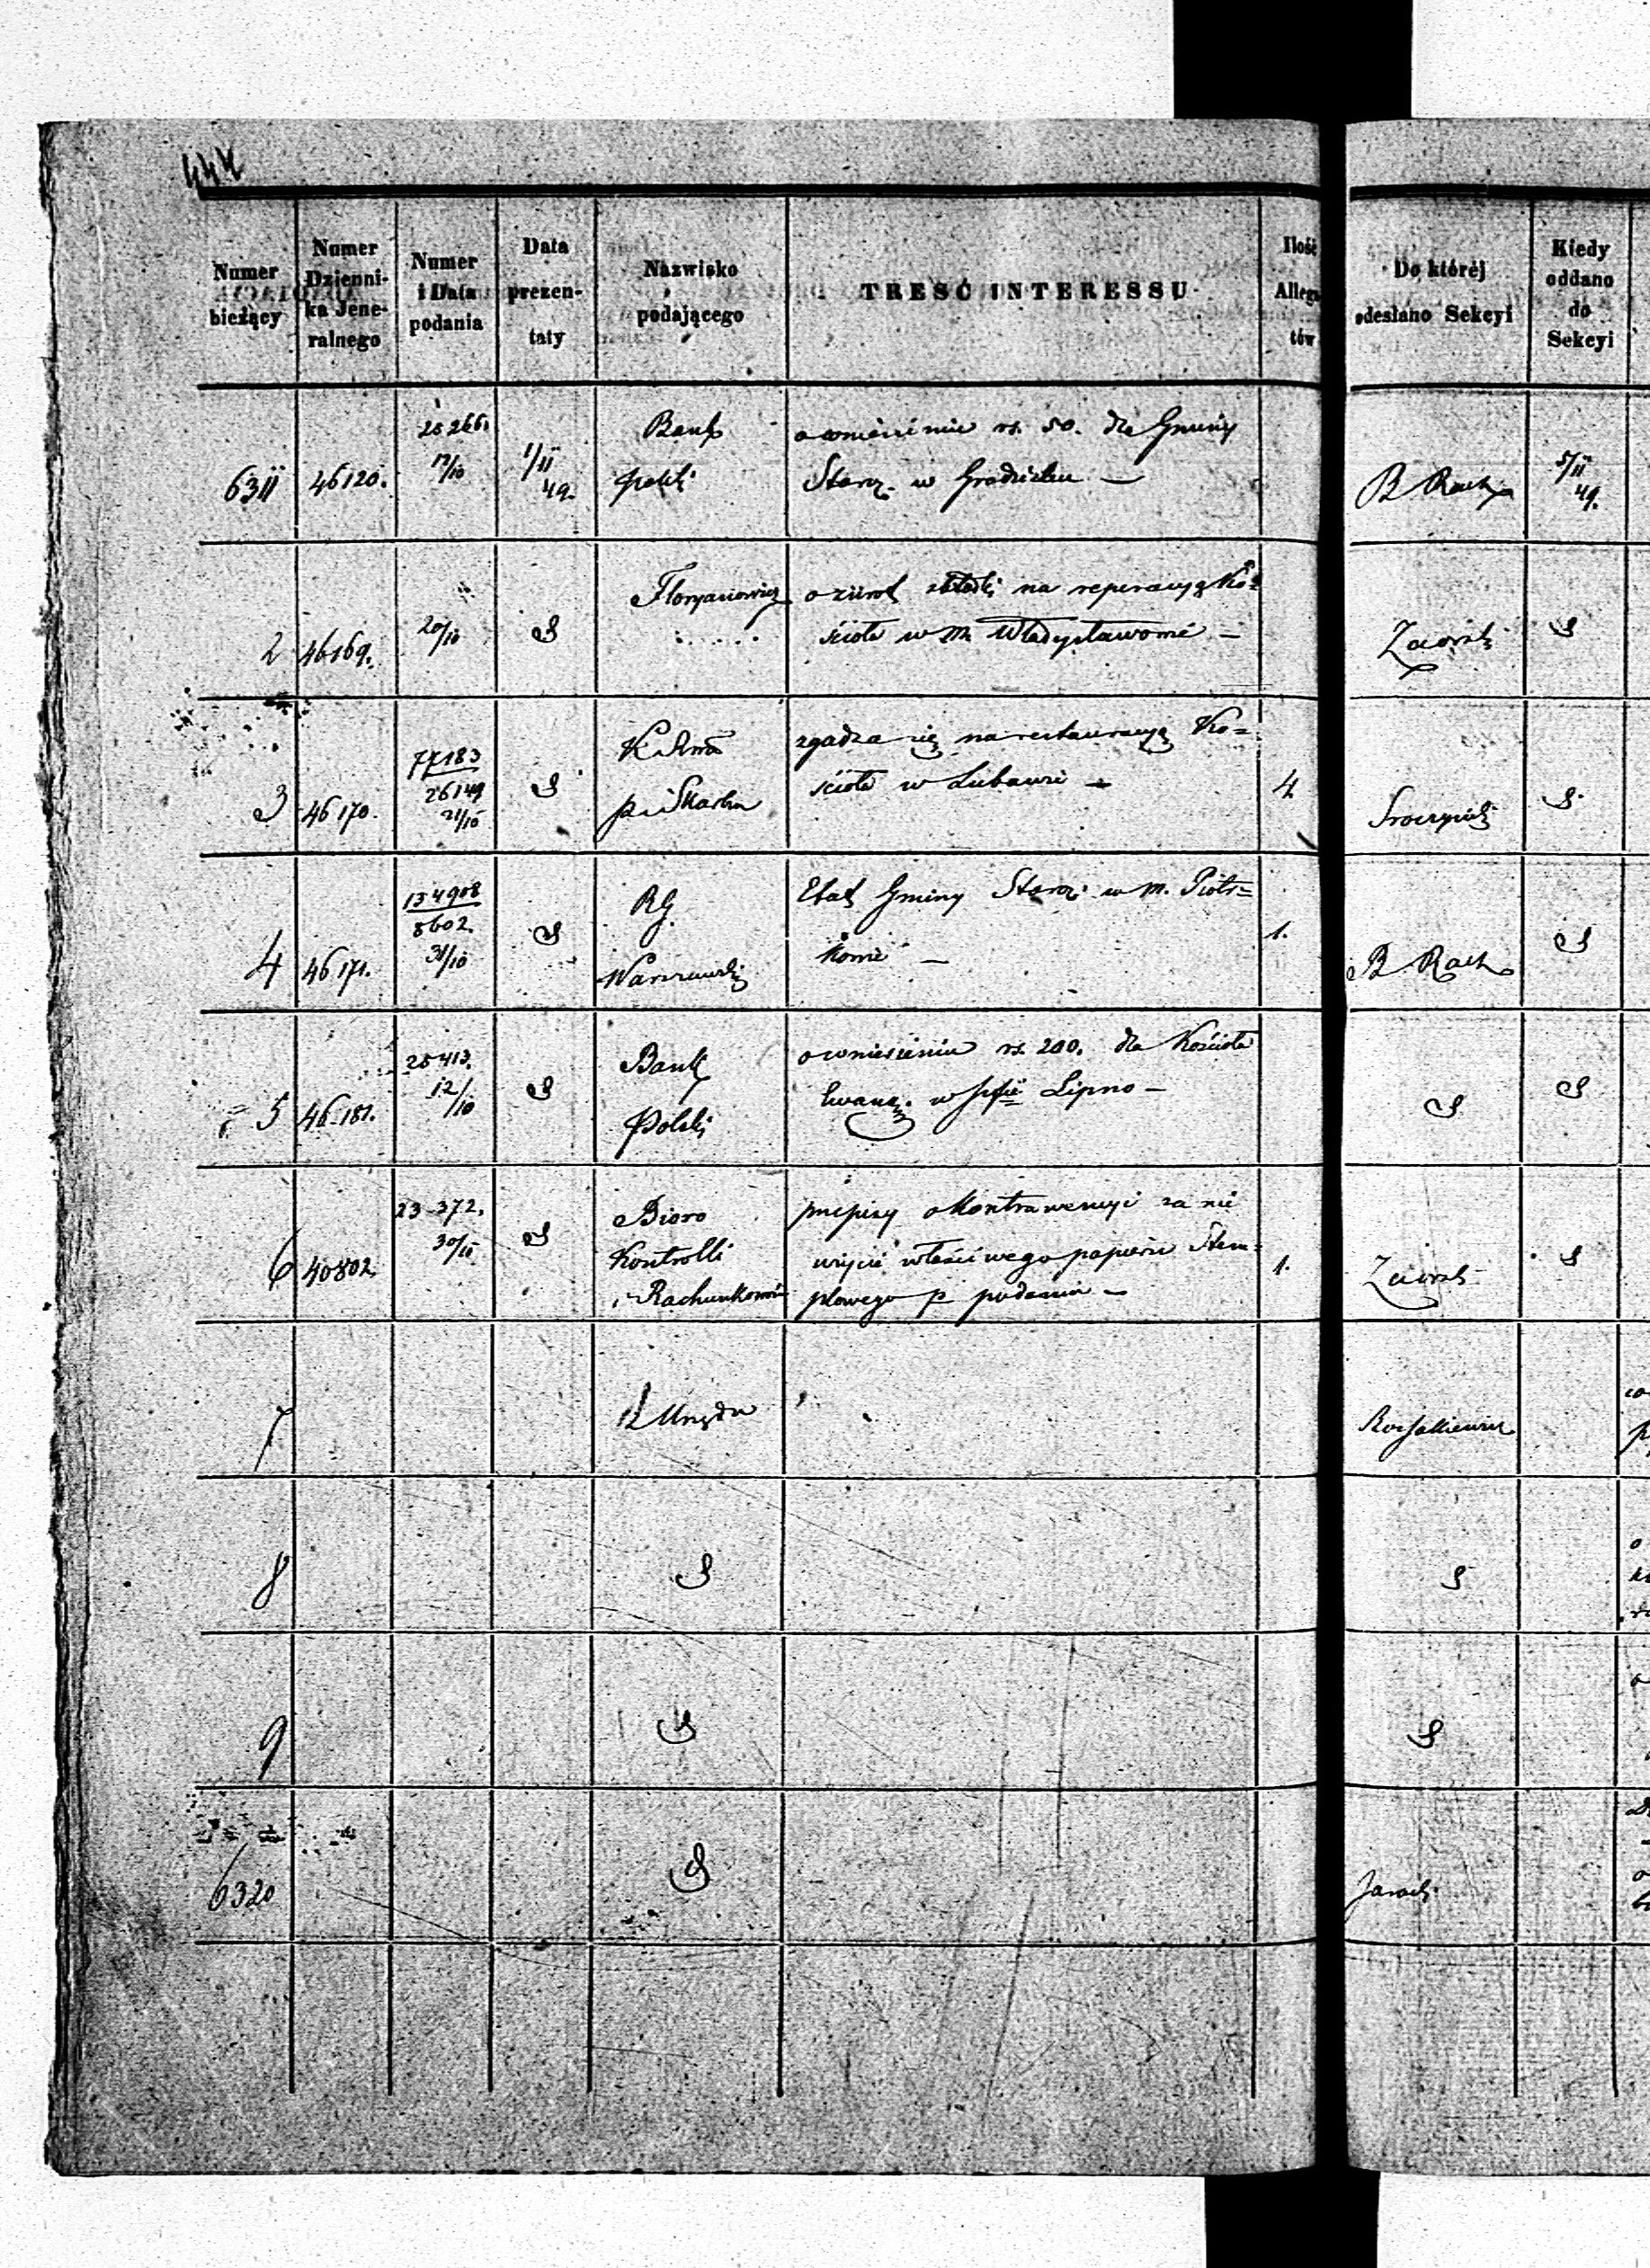 444
Numer bieżący
Numer Dzienni- ka Jene- ralnego
Numer i Data podania
Data prezen- taty
Nazwisko podającego
TREŚĆ INTERESSU
Ilość Allega tów
Do któréj odesłano Sekcyi
Kiedy oddano do Sekcyi
6311 46120. 25266. 17/10 1/11 49. Bank Polski
o wniesienie rs. 50. dla Gminy
Starz. w Grodzisku —
B Rach 5/11 49.
2 46169. 20/10 Floryanowicz
o zwrot składki na reperacyą Ko=
ścioła w m. Władysławowie —
Zaorski
3 46170. 77183 26149 21/10
K Rząd
P i Skarbu
zgadza się na restauracyą Ko=
ścioła w Lubawie —
4
4 46171. 134908 8602. 31/10
RG.
Warszawski
Etat Gminy Starz. w m. Piotr=
kowie —
1.
B Rach
5 46181. 25413. 12/10
Bank
Polski
o wniesieniu rs. 200. dla Kościoła
Ewang. w Lipno —
6 40802 23372. 30/10
Bioro
Kontrolli
i Rachunkowo
przepisy o Kontrawencyi za nie
użycie właściwego papieru Stem=
plowego p podania —
1.
Zaorski
7 Z Urzędu
8
9
6320